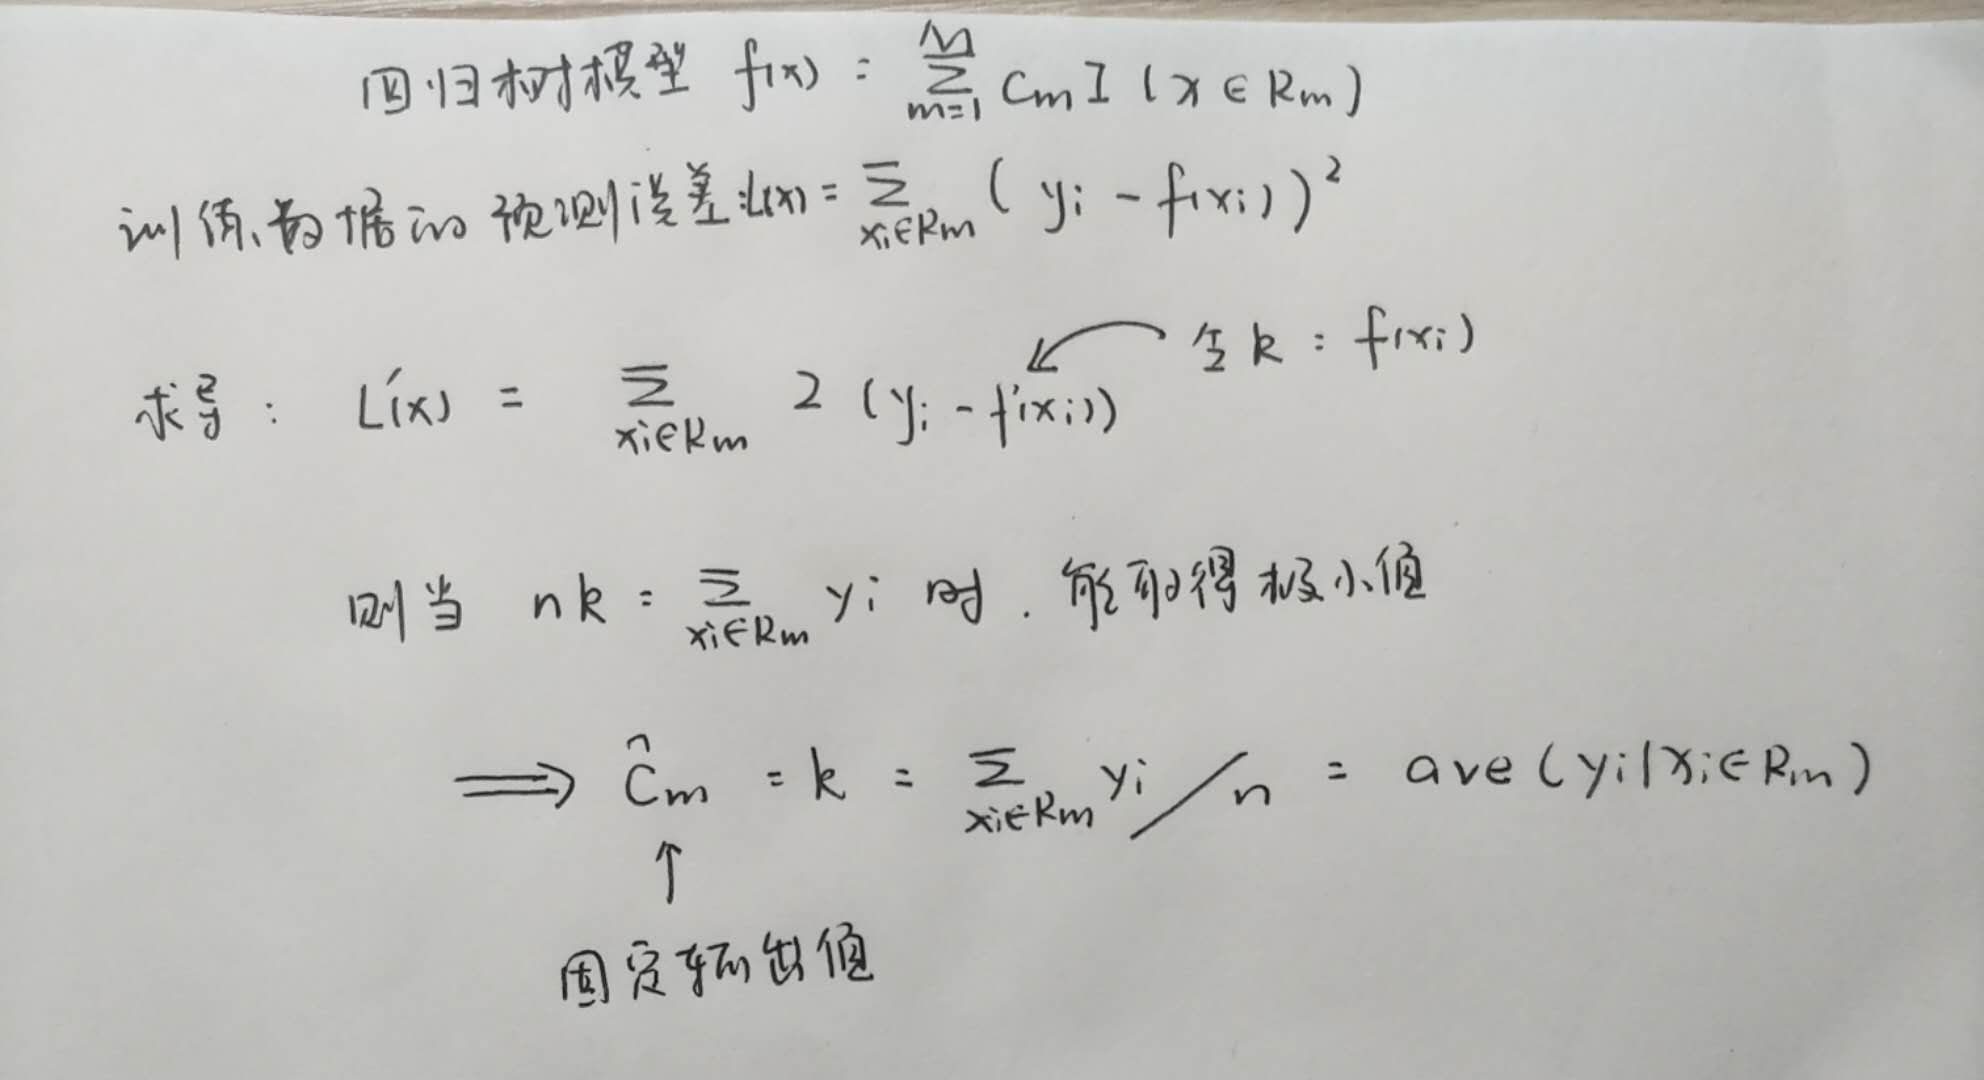 回归树模型 f(x) = ∑_{m=1}^{M} Cm I (x ∈ Rm)
训练数据的预测误差: L(x) = ∑_{xi∈Rm} (yi - f(xi))²
令 k = f(xi)
求导: L'(x) = ∑_{xi∈Rm} 2 (yi - f(xi))
则当 nk = ∑_{xi∈Rm} yi 时. 能取得极小值
⟹ Ĉm = k = ∑_{xi∈Rm} yi / n = ave(yi|xi∈Rm)
↑
固定输出值